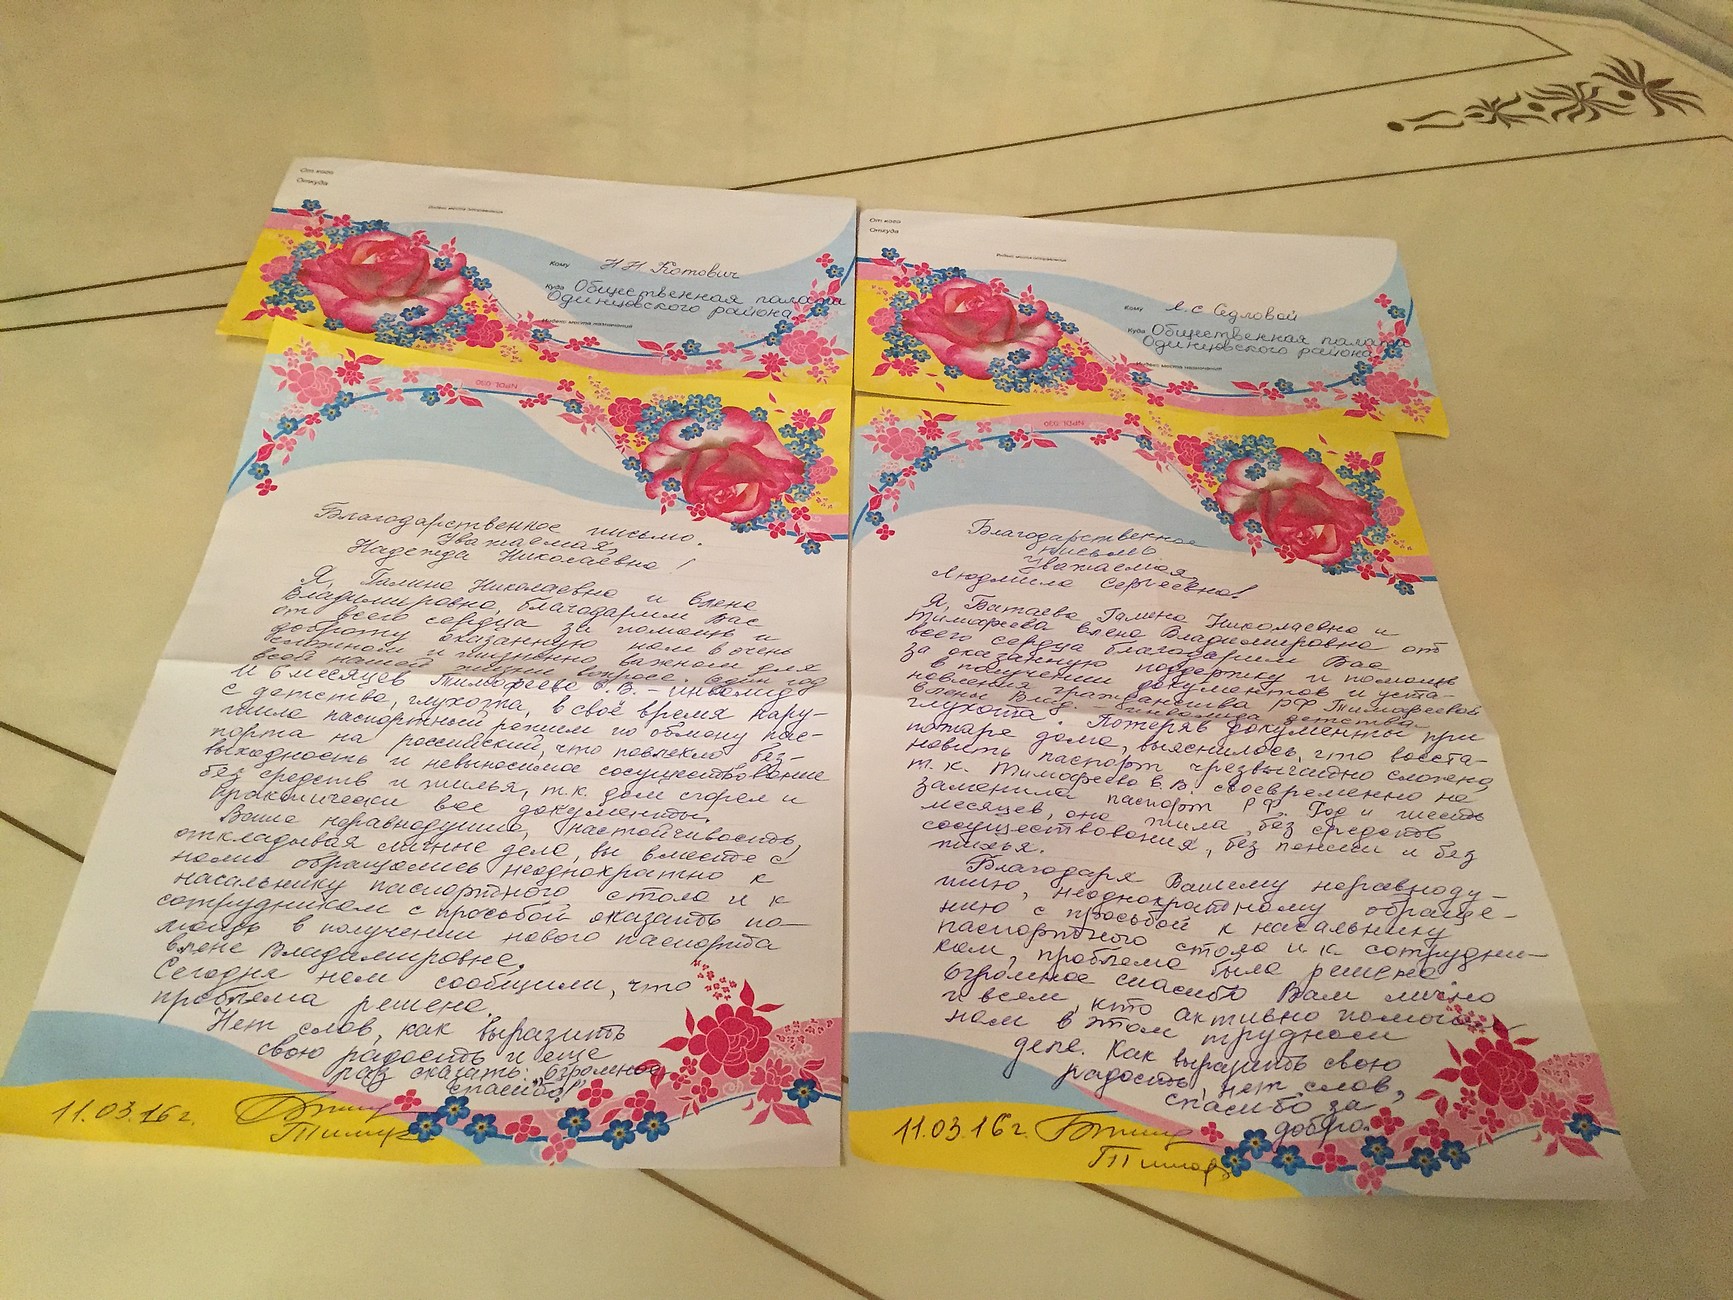 От кого
Откуда
Индекс места отправления
Кому Н Н Котович
Куда Общественная палата
Одинцовского района
Индекс места назначения
Благодарственное письмо.
Уважаемая,
Надежда Николаевна!
Я, Галина Николаевна и Елена
Владимировна, благодарим Вас
от всего сердца за помощь и
доброту оказанную нам в очень
сложном и жизненно важном для
всей нашей жизни вопросе. Один год
и 6 месяцев Тимофеева Е.В. - инвалид
с детства, глухота, в своё время нару-
шила паспортный режим по обмену пас-
порта на российский, что повлекло без-
выходность и невыносимое сосуществование
без средств и жилья, т.к. дом сгорел и
практически все документы.
Ваше неравнодушие, настойчивость,
откладывая личные дела, вы вместе с
нами обращались неоднократно к
начальнику паспортного стола и к
сотрудникам с просьбой оказать по-
мощь в получении нового паспорта
Елене Владимировне.
Сегодня нам сообщили, что
проблема решена.
Нет слов, как выразить
свою радость и еще
раз сказать: "Огромное
спасибо!"
11.03.16г.
От кого
Откуда
Индекс места отправления
Кому Л.С Седловой
Куда Общественная палата
Одинцовского района
Индекс места назначения
Благодарственное
письмо.
Уважаемая,
Людмила Сергеевна!
Я, Батаева Галина Николаевна и
Тимофеева Елена Владимировна от
всего сердца благодарим Вас
за оказанную поддержку и помощь
в получении документов и уста-
новления гражданства РФ Тимофеевой
Елены Влад. - инвалида детства
"глухота". Потеряв документы при
пожаре дома, выяснилось, что восста-
новить паспорт чрезвычайно сложно,
т.к. Тимофеева Е.В. своевременно не
заменила паспорт РФ. Год и шесть
месяцев, она жила без средств
сосуществования, без пенсии и без
жилья.
Благодаря Вашему неравноду-
шию, неоднократному обраще-
нию с просьбой к начальнику
паспортного стола и к сотрудни-
кам, проблема была решена.
Огромное спасибо Вам лично
и всем, кто активно помогал
нам в этом трудном
деле. Как выразить свою
радость, нет слов,
спасибо за
добро.
11.03.16г.